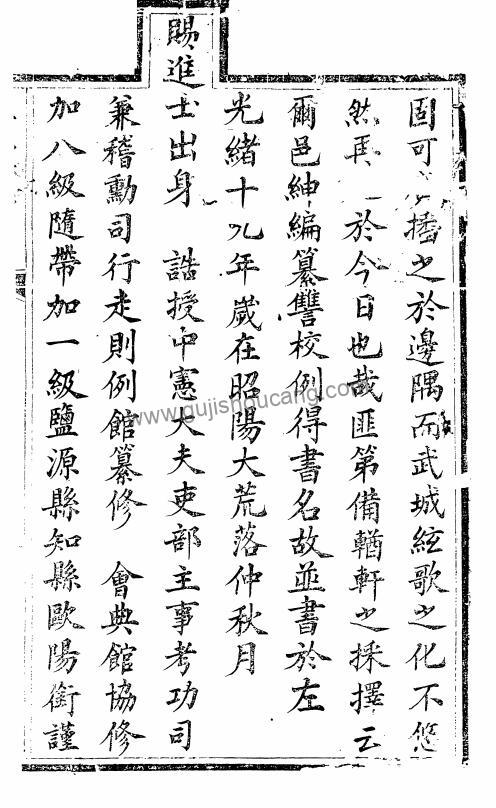 固可播之於邊隅而武城絃歌之化不悠
然再於今日也哉匪第備輶軒之採擇云
爾邑紳編纂讐校例得書名故並書於左
光緒十九年歲在昭陽大荒落仲秋月
賜進士出身 誥授中憲大夫吏部主事考功司
兼稽勳司行走則例館纂修 會典館協修
加八級隨帶加一級鹽源縣知縣歐陽銜謹
www.gujishoucang.com